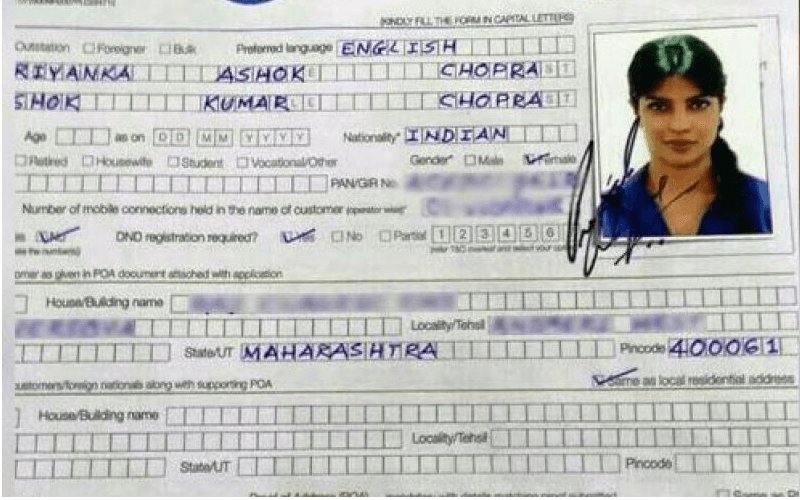 (KINDLY FILL THE FORM IN CAPITAL LETTERS)
Outstation Foreigner Bulk Preferred language ENGLISH
RIYANKA ASHOK CHOPRA
SHOK KUMAR CHOPRA
Age as on D D M M Y Y Y Y Nationality* INDIAN
Retired Housewife Student Vocational/Other Gender* Male Female
PAN/GIR No.
Number of mobile connections held in the name of customer (operator wise)*
No DND registration required? Yes No Partial 1 2 3 4 5 6
omer as given in POA document attached with application
House/Building name
Locality/Tehsil
State/UT MAHARASHTRA Pincode 400061
customers/foreign nationals along with supporting POA Same as local residential address
House/Building name
Locality/Tehsil
State/UT Pincode